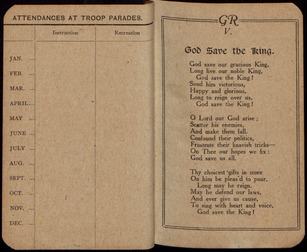 ATTENDANCES AT TROOP PARADES.
Instruction
Recreation
JAN.
FEB.
MAR.
APRIL
MAY
JUNE
JULY
AUG.
SEPT.
OCT.
NOV.
DEC.
GR
V.
God Save the King.
God save our gracious King,
Long live our noble King,
God save the King!
Send him victorious,
Happy and glorious,
Long to reign over us,
God save the King!
O Lord our God arise;
Scatter his enemies,
And make them fall.
Confound their politics,
Frustrate their knavish tricks—
On Thee our hopes we fix:
God save us all.
Thy choicest gifts in store
On him be pleas'd to pour,
Long may he reign.
May he defend our laws,
And ever give us cause,
To sing with heart and voice,
God save the King!